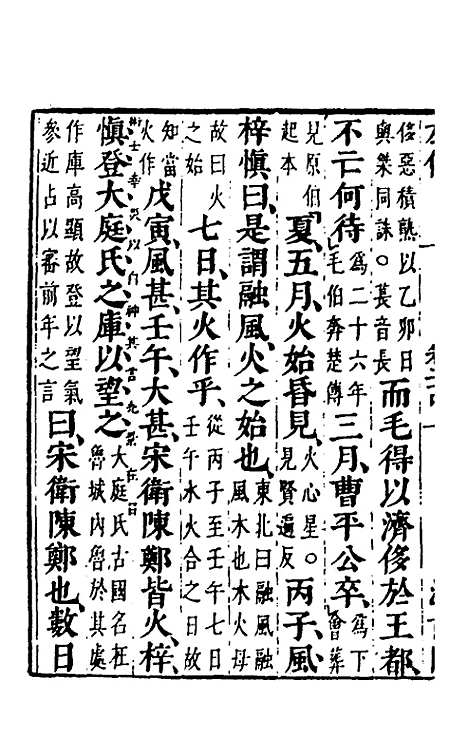 侈惡積熟以乙卯日
與桀同誅○萇音長
而毛得以濟侈於王都、
不亡何待
為二十六年
毛伯奔楚傳
三月、曹平公卒、
為下
會葬
見原伯
起本
夏、五月、火始昏見、
火心星○
見賢遍反
丙子、風、
梓愼曰、是謂融風、火之始也、
東北曰融風融
風木也木火母
故曰火
之始
七日、其火作乎、
從丙子至壬午七日
壬午水火合之日故
知當
火作
戊寅、風甚、壬午、大甚、宋衛陳鄭皆火、梓
愼登大庭氏之庫以望之、
大庭氏古國名在
魯城內魯於其處
作庫高顯故登以望氣
參近占以審前年之言
曰、宋衛陳鄭也、數日